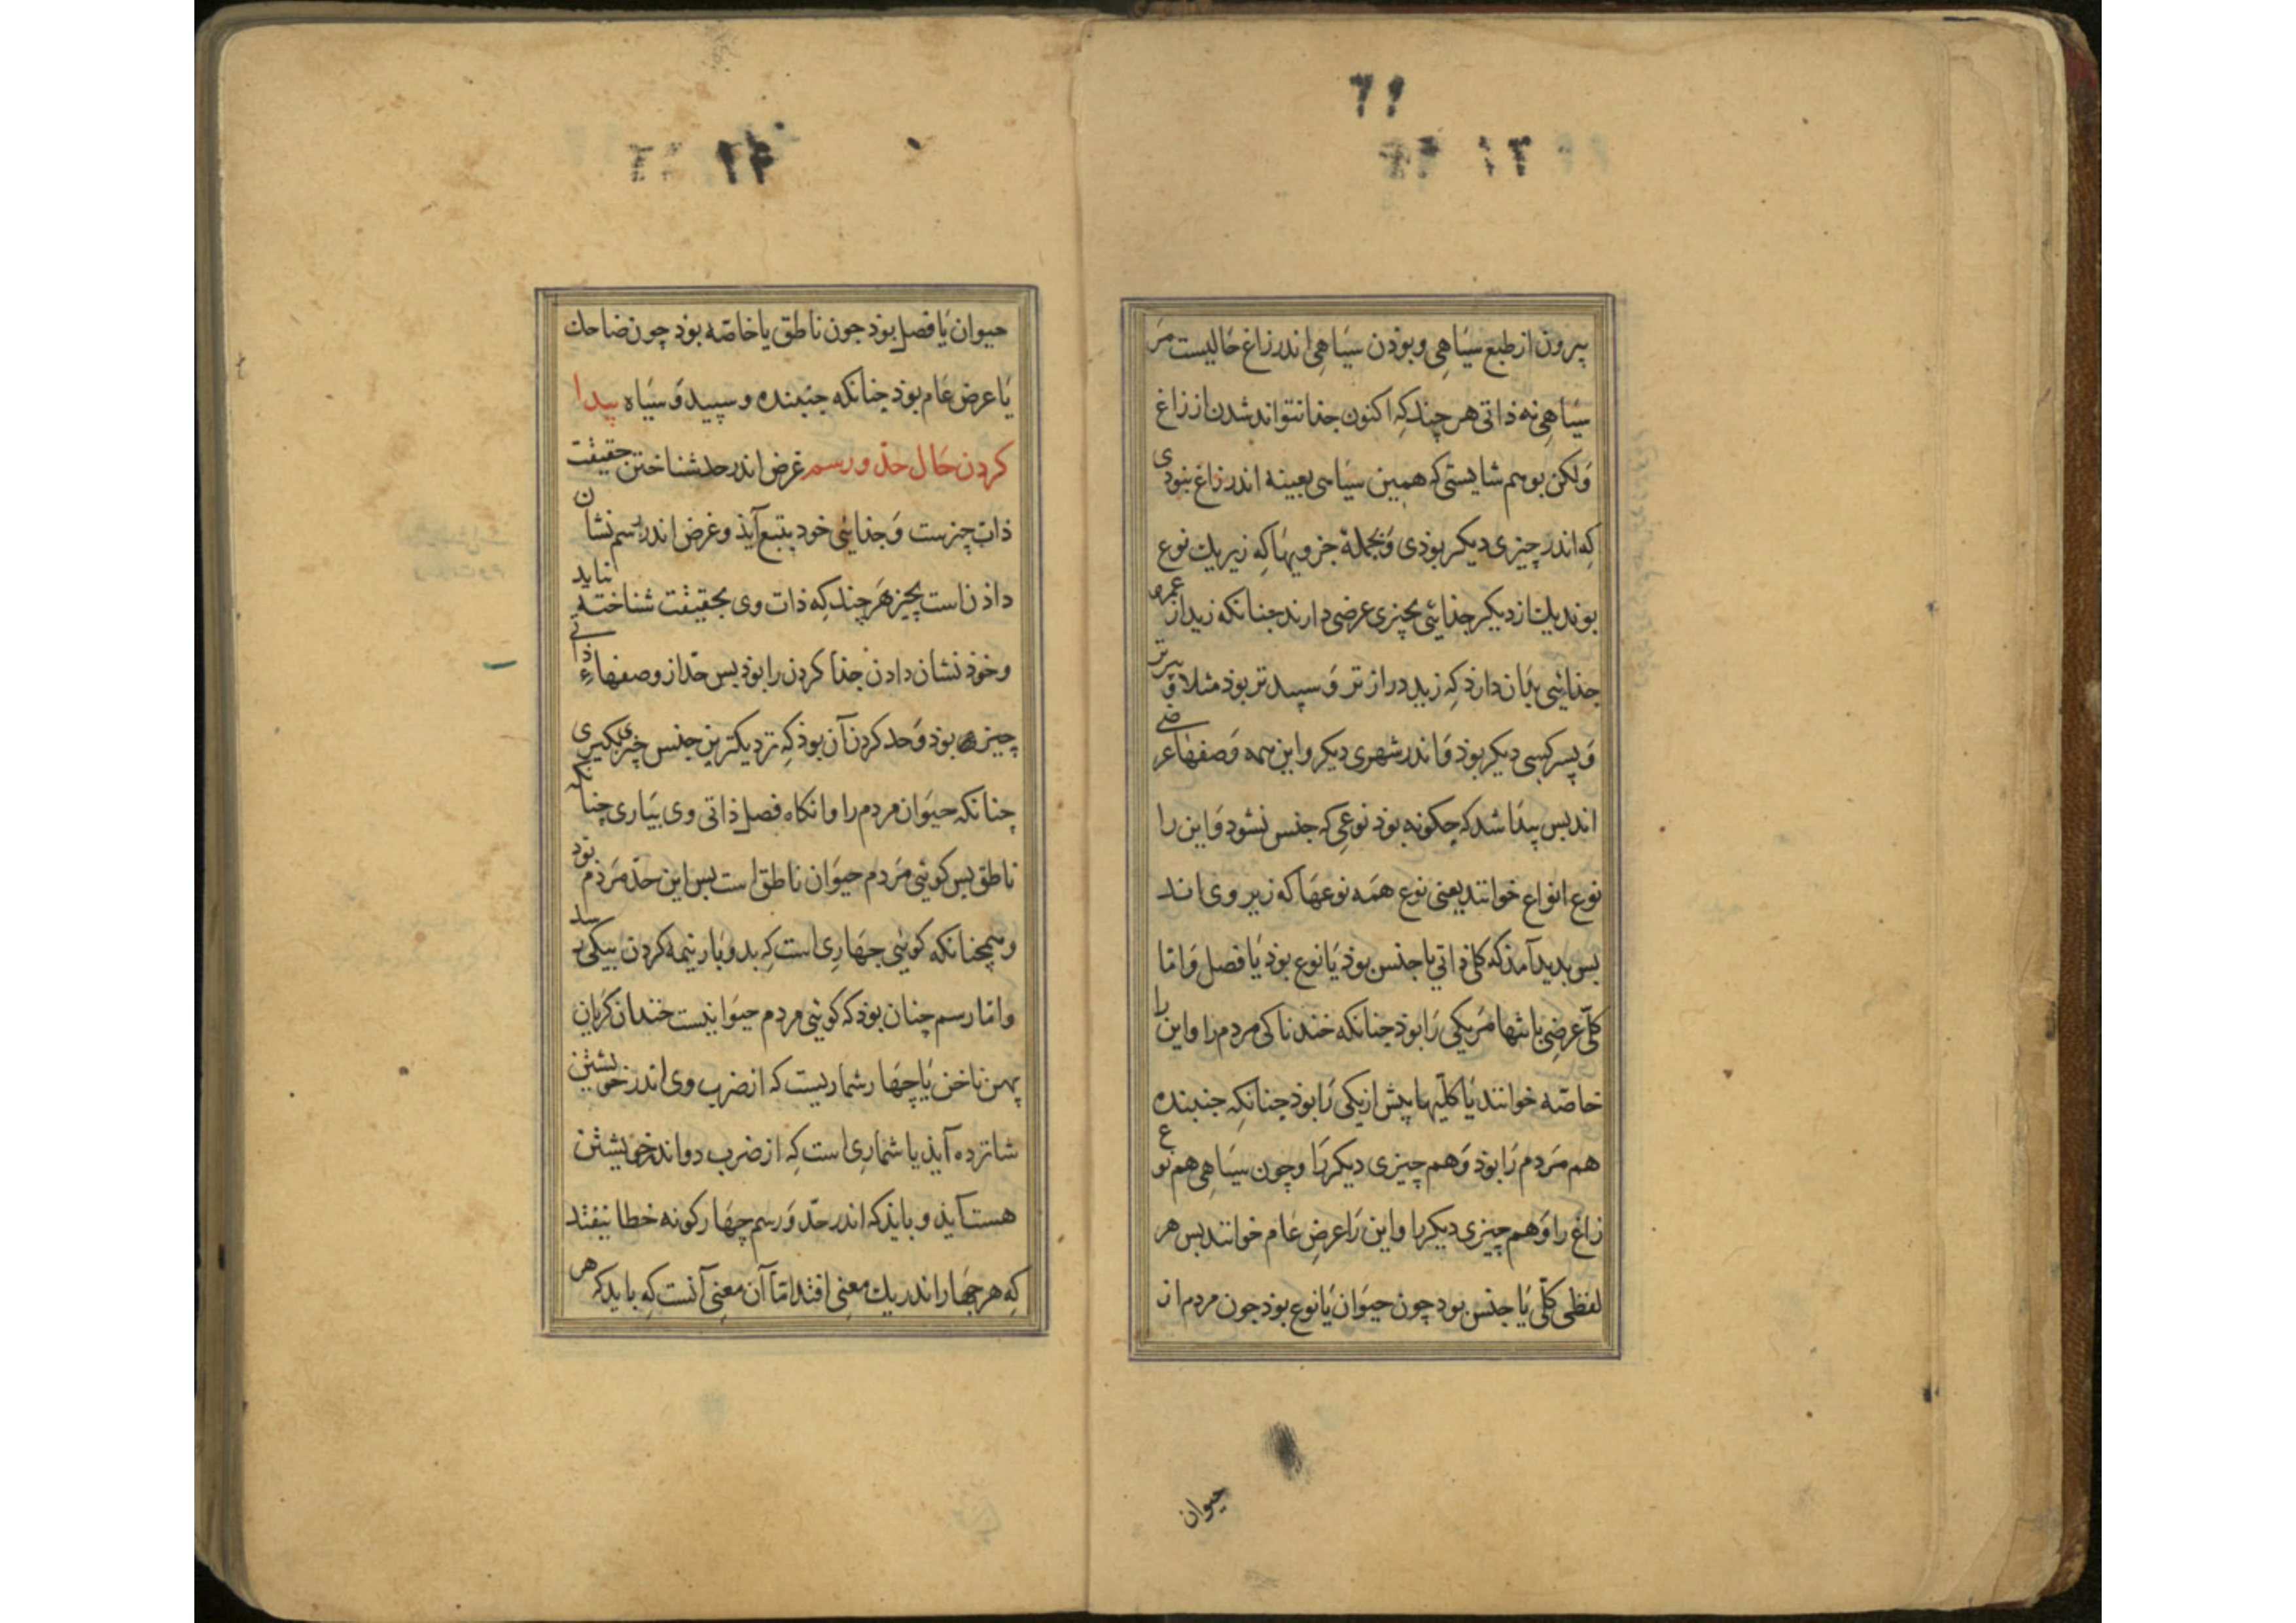 بیرون از طبع سیاهی و بوذن سیاهی اندر زاغ حالیست مر
سیاهی نه ذاتی هر چند که اکنون جذا نتواند شدن از زاغ
ولکن بوهم شایستی که همین سیاسی بعینه اندر زاغ نبودی
که اندر چیزی دیکر بوذی و بجملة جزویها که زیر یك نوع
بوند یك از دیکر جذائی بچیزی عرضی دارند جنانکه زید از عمرو
جذائی بذان دارذ که زید دراز تر و سپید تر بوذ مثلا و پیرتر
و پسر کسی دیکر بوذ و اندر شهری دیکر و این همه وصفها عرضی
اند بس پیذا شد که چکونه بوذ نوعی که جنس نشود و این را
نوع انواع خوانند یعنی نوع همه نوعها که زیر وی اند
بس بدید آمذ که کلی ذاتی یا جنس بوذ یا نوع بوذ یا فصل و امّا
کلّی عرضی یا تنها مر یکی را بوذ جنانکه خندناکی مردم را و این را
خاصّه خوانند یا کلیّها بیش از یکی را بوذ جنانکه جنبنده
هم مردم را بوذ و هم چیزی دیکر را و چون سیاهی هم نوع
زاغ را و هم چیزی دیکر را و این را عرض عام خوانند بس هر
لفظی کلّی یا جنس بود چون حیوان یا نوع بوذ جون مردم از
حیوان
۱۴
حیوان یا فصل بوذ جون ناطق یا خاصّه بوذ چون ضاحك
یا عرض عام بوذ جنانکه جنبنده و سپید و سیاه پیدا
کردن حال حدّ و رسم غرض اندر حد شناختن حقیقت
ذات چیزست و جذائی خود بتبع آیذ و غرض اندر رسم نشان
داذن است بچیز هر چند که ذات وی بحقیقت شناخته نیاید
و خوذ نشان دادن جذا کردن را بوذ بس حدّ از وصفهاء ذاتی
چیز بوذ و حد کردن آن بوذ که نزدیکترین جنس چیزی بکیری
چنانکه حیوان مردم را و انکاه فصل ذاتی وی بیاری چنانکه
ناطق بس کوئی مردم حیوان ناطق است بس این حدّ مردم بوذ
و همچنانکه کوئی جهاری است که بدو بار نیمه کردن بیکی رسد
و امّا رسم چنان بوذ که کوئی مردم حیوانیست خندان کریان
پهن ناخن یا چهار شماریست که از ضرب وی اندر خویشتن
شانزده آیذ یا شماری است که از ضرب دو اندر خویشتن
هست آیذ و بایذ که اندر حدّ و رسم چهار کونه خطا نیفتد
که هر جهار اندر یك معنی افتد امّا آن معنی آنست که باید که هر